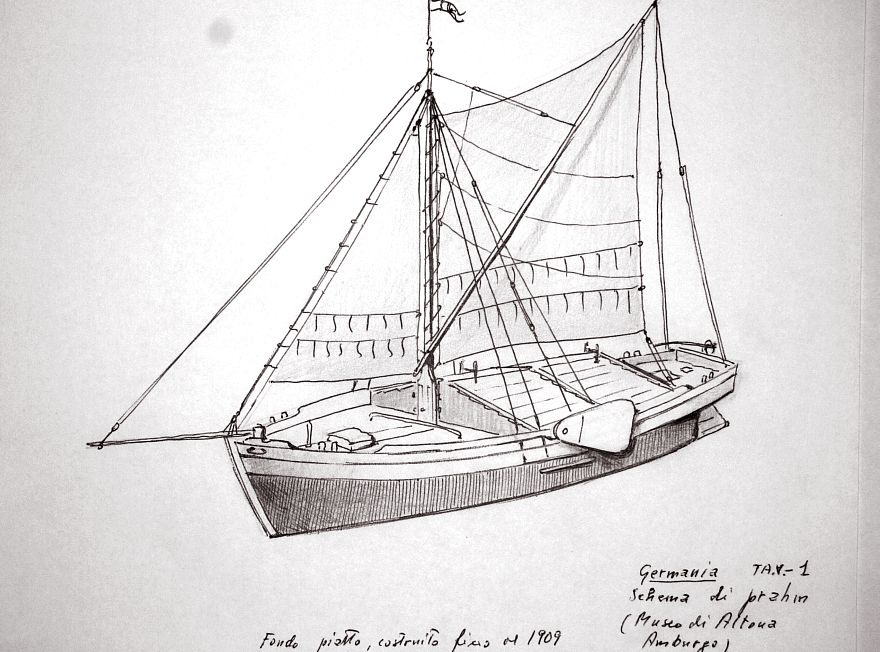 Germania TAV.-1
Schema di prahm
(Museo di Altona
Amburgo)
Fondo piatto, costruito fino al 1909